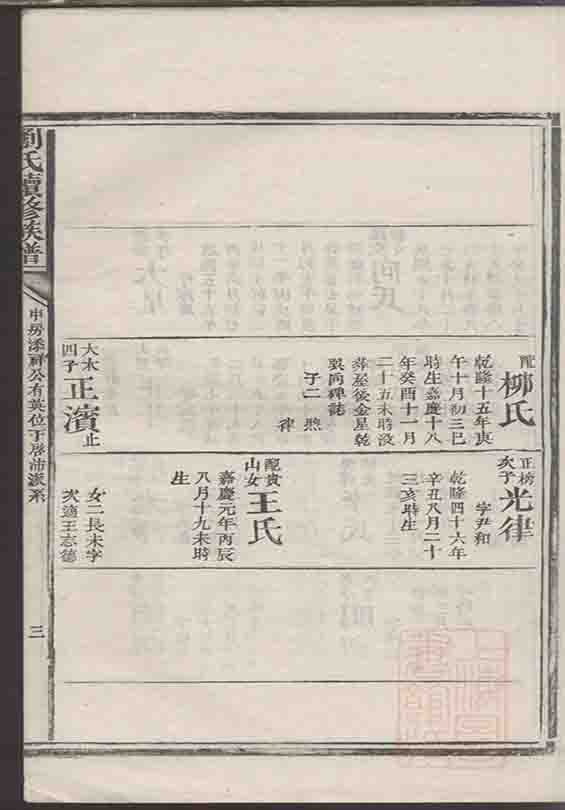 配
柳氏
乾隆十五年庚
午十月初三巳
時生嘉慶十八
年癸酉十一月
二十五未時沒
葬屋後金星乾
巽丙碑誌
子二 煦
律
大木
四子
正濱止
正榜
次子
光律
字尹和
乾隆四十六年
辛丑八月二十
三亥時生
配黃
山女
王氏
嘉慶元年丙辰
八月十九未時
生
女二長未字
次適王志德
劉氏續修族譜
申房添祥公有英位下居沛派系
三